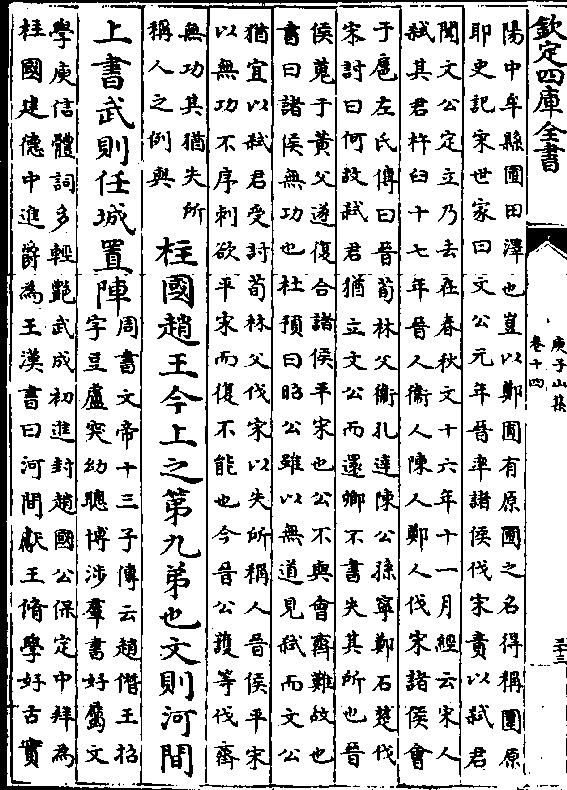 欽定四庫全書
庾子山集
卷十四
陽中牟縣圃田澤也豈以鄭圃有原圃之名得稱圃原
耶史記宋世家曰文公元年晉率諸侯伐宋責以弑君
聞文公定立乃去在春秋文十六年十一月經云宋人
弑其君杵臼十七年晉人衛人陳人鄭人伐宋諸侯會
于扈左氏傳曰晉荀林父衛孔達陳公孫寧鄭石楚伐
宋討曰何故弑君猶立文公而還卿不書失其所也晉
侯蒐于黄父遂復合諸侯平宋也公不與會齊難故也
書曰諸侯無功也杜預曰昭公雖以無道見弑而文公
猶宜以弑君受討荀林父伐宋以失所稱人晉侯平宋
以無功不序刺欲平宋而復不能也今晉公護等伐齊
無功其猶失所
稱人之例與
柱國趙王今上之第九弟也文則河間
上書武則任城置陣
周書文帝十三子傳云趙僭王招
字豆盧突幼聰博涉羣書好屬文
學庾信體詞多輕艷武成初進封趙國公保定中拜為
柱國建德中進爵為王漢書曰河間獻王脩學好古實